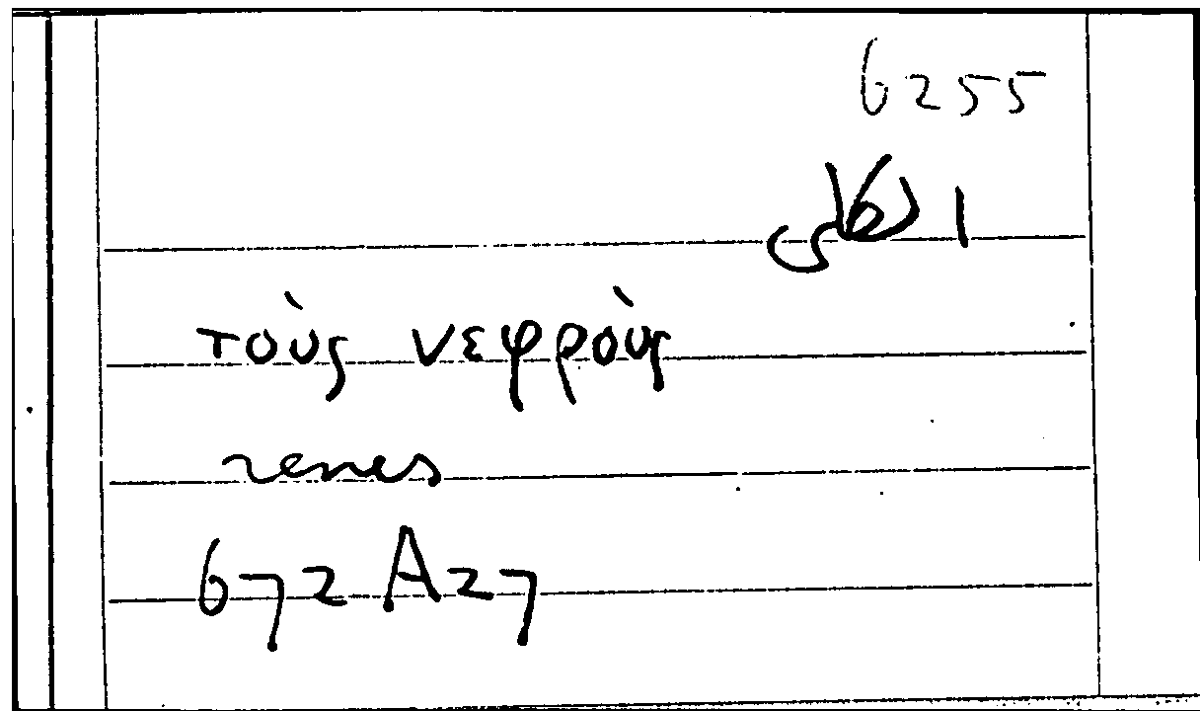 6255
τοὺς νεφροὺς
renes
672 A27